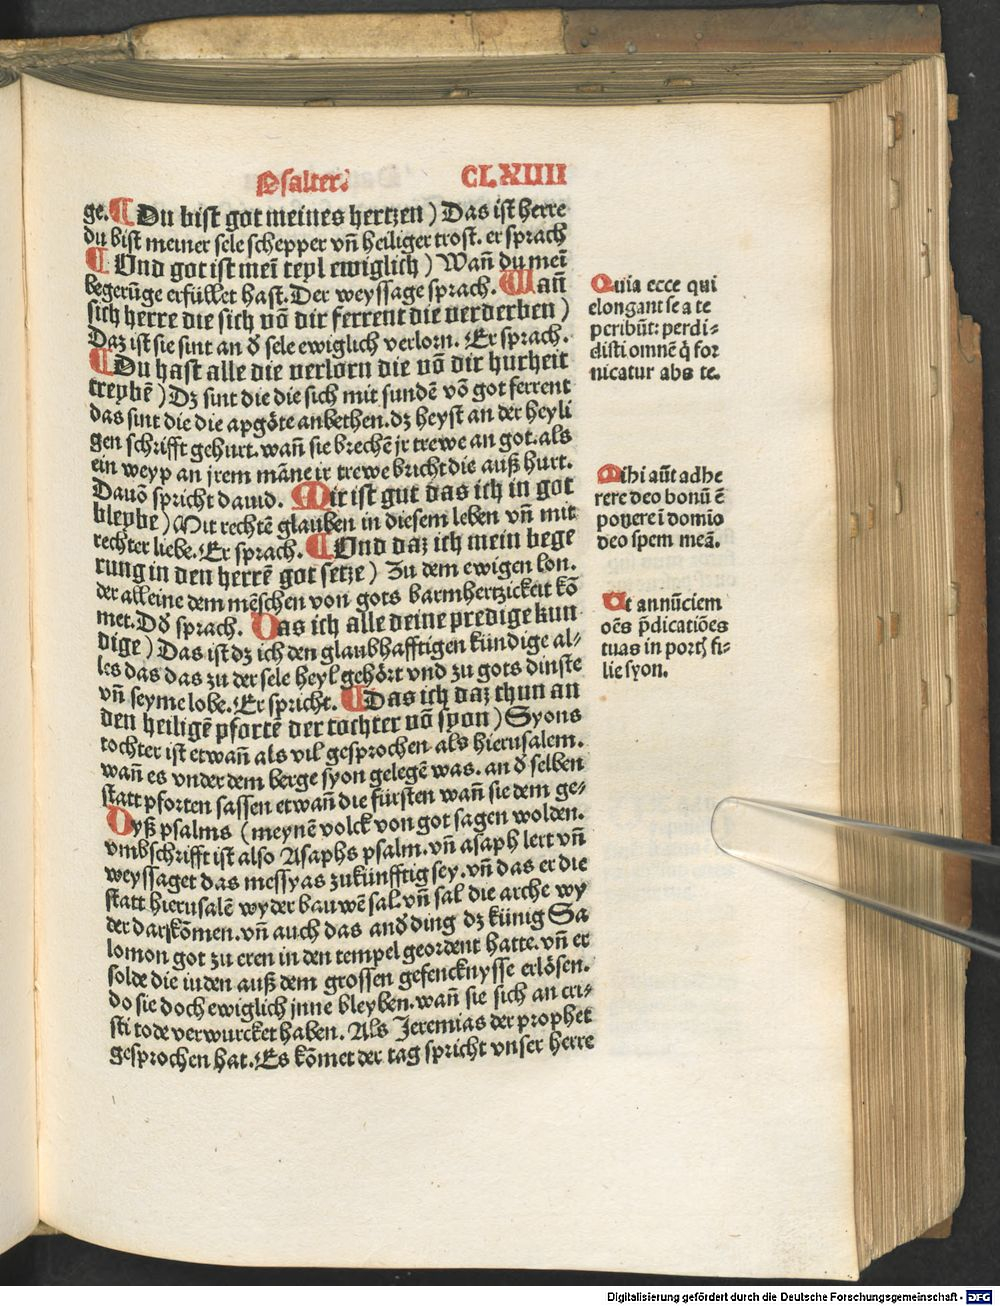 Psalter. CLXIIII
ge. ¶ Du bist got meines hertzen) Das ist herre
du bist meiner sele schepper vñ heiliger trost. er sprach
¶ Vnd got ist meĩ teyl ewiglich) Wañ du meĩ
begerũge erfüllet hast. Der weyssage sprach. Wañ
sich herre die sich võ dir ferrent die verderben)
Daz ist sie sint an ð sele ewiglich verlorn. Er sprach.
¶ Du hast alle die verlorn die võ dir hurheit
treybẽ) Dz sint die die sich mit sundẽ võ got ferrent
das sint die die apgöte anbethen. dz heyst an der heyli
gen schrifft gehurt. wañ sie brechẽ jr trewe an got. als
ein weyp an jrem mãne ir trewe bricht die auß hurt.
Dauõ spricht dauid. Mir ist gut das ich in got
bleybe) Mit rechtẽ glauben in diesem leben vñ mit
rechter liebe. Er sprach. ¶ Vnd daz ich mein bege
rung in den herrẽ got setze) Zu dem ewigen lon.
der alleine dem mẽschen von gots barmhertzickeit kõ
met. Dð sprach. Das ich alle deine predige kun
dige) Das ist dz ich den glaubhafftigen kündige al⸗
les das das zu der sele heyl gehört vnd zu gots dinste
vñ seyme lobe. Er spricht. ¶ Das ich daz thun an
den heiligẽ pfortẽ der tochter võ syon) Syons
tochter ist etwañ als vil gesprochen als hierusalem.
wañ es vnder dem berge syon gelegẽ was. an ð selben
statt pforten sassen etwañ die fürsten wañ sie dem ge⸗
Dyß psalms (meynẽ volck von got sagen wolden.
vmbschrifft ist also Asaphs psalm. vñ asaph lert vñ
weyssaget das messyas zukünfftig sey. vñ das er die
statt hierusalẽ wyder bauwẽ sal. vñ sal die arche wy
der dar kõmen. vñ auch das anð ding dz künig Sa
lomon got zu eren in den tempel geordent hatte. vñ er
solde die iuden auß dem grossen gefencknysse erlösen.
do sie doch ewiglich jnne bleyben. wañ sie sich an cri⸗
sti tode verwurcket haben. Als Jeremias der prophet
gesprochen hat. Es kõmet der tag spricht vnser herre
Quia ecce qui
elongant se a te
peribũt: perdi⸗
disti omnẽ q̃ for
nicatur abs te.
Mihi aũt adhe
rere deo bonũ ẽ
ponere ĩ domĩo
deo spem meã.
Ut annũciem
oẽs p̃dicatiões
tuas in portꝭ fi⸗
lie syon.
Digitalisierung gefördert durch die Deutsche Forschungsgemeinschaft - DFG